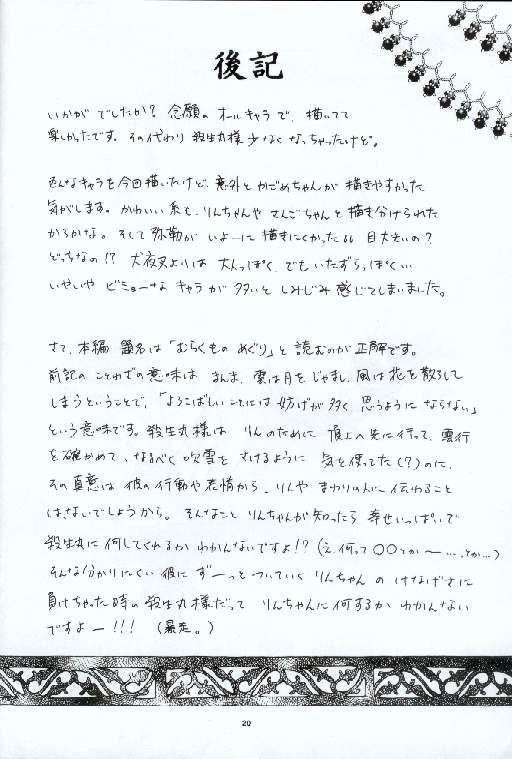 後記
いかが でしたか? 念願の オールキャラ で、描いてて
楽しかったです。その代わり 殺生丸様 少なく なっちゃったけど。
そんなキャラを今回描いたけど、意外と かごめちゃんが 描きやすかった
気がします。かわいい系も、りんちゃんや さんごちゃんと 描き分けられた
からかな。そして弥勒が いよーに 描きにくかった。 目大きいの?
どっちなの!? 犬夜叉よりは 大人っぽく、でも いたずらっぽく…
いやいや ビミョーな キャラが 多いと しみじみ 感じてしまいました。
さて、本編 題名は「むらくもの めぐり」と 読むのが 正解です。
前記の ことわざの意味は まんま、雲は月を じゃまし、風は花を散らして
しまうということで、「よろこばしいことには 妨げが多く 思うように ならない」
という意味です。殺生丸様は りんのために 頂上へ先に行って、雲行
を確かめて、なるべく吹雪を さけるように 気を使ってた(?)のに、
その真意は 彼の行動や表情から、りんや まわりの人に 伝わること
はないでしょうから。そんなこと りんちゃんが知ったら 幸せいっぱいで
殺生丸に何してくれるか わかんないですよ!? (え、何って ○○とか〜……とか…)
そんな分かりにくい 彼に ずーっと ついていく りんちゃんの けなげさに
負けちゃった時の 殺生丸様だって りんちゃんに何するか わかんない
ですよー!!! (暴走。)
20